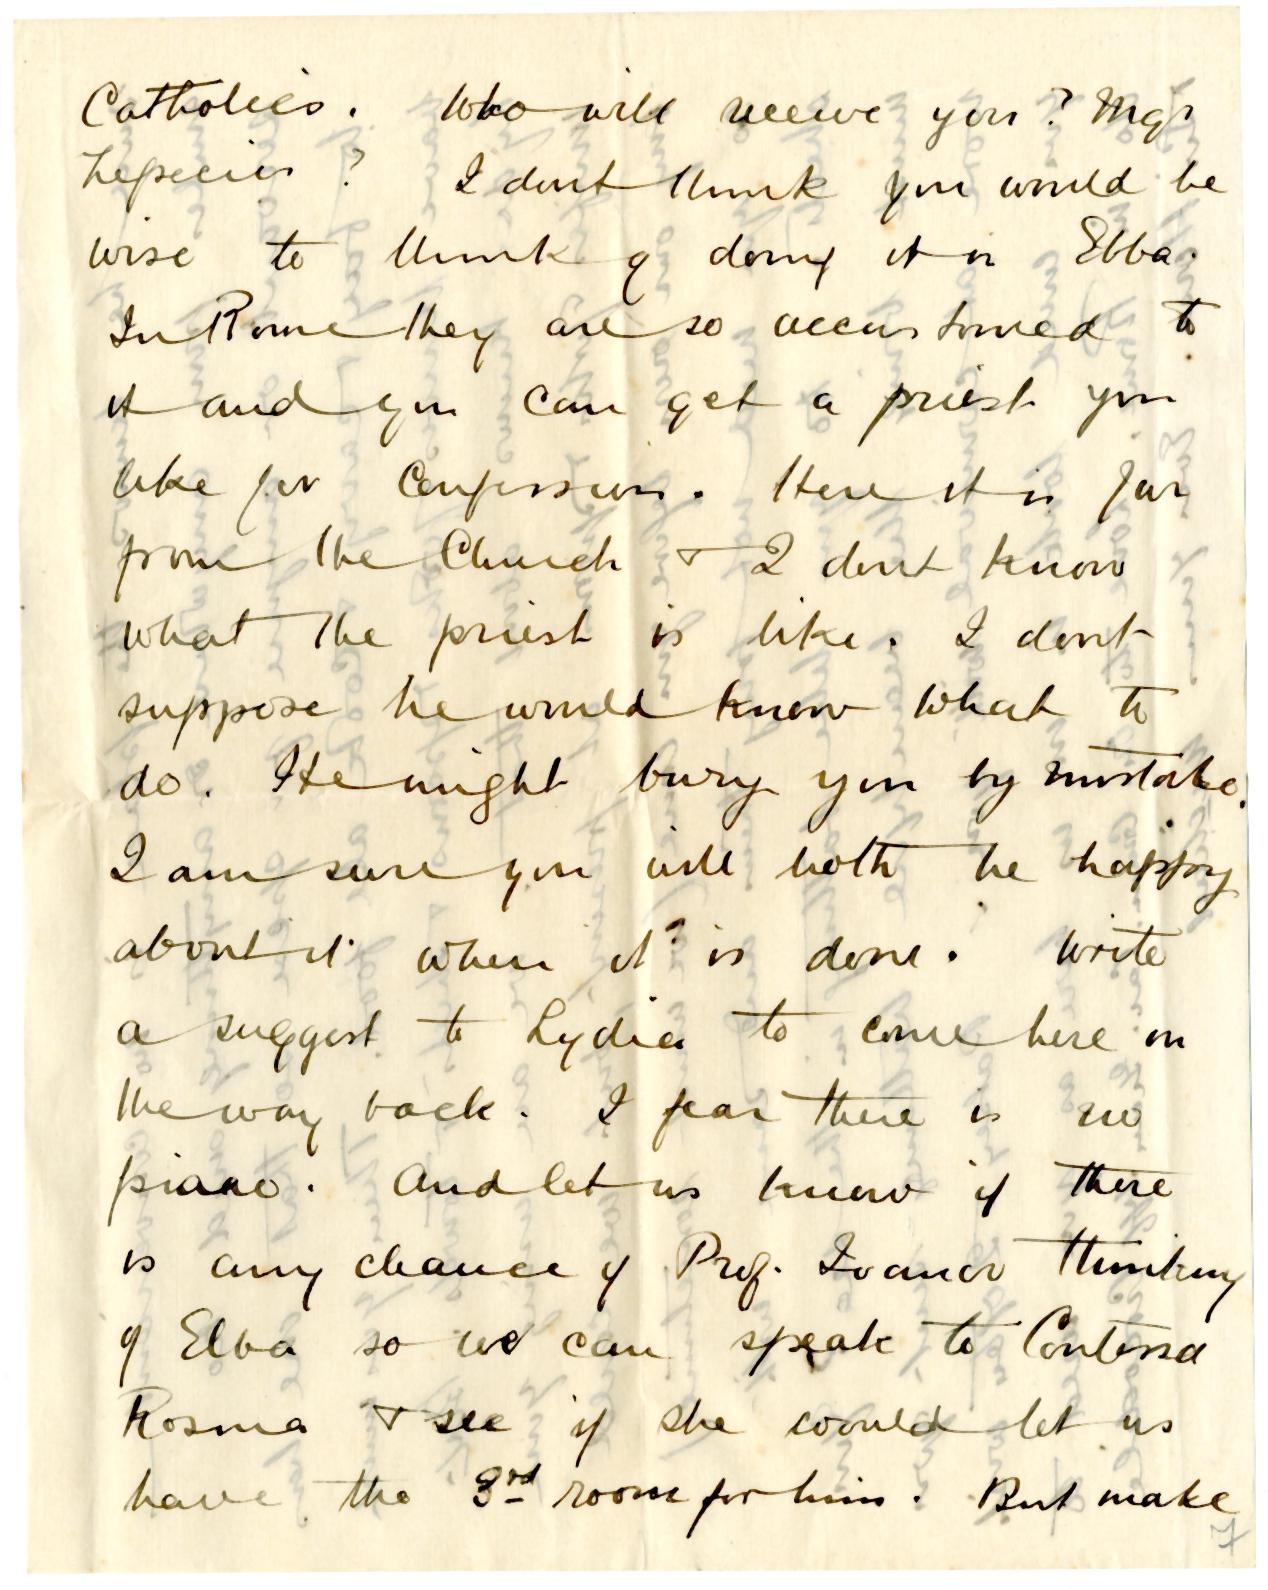 Catholics. Who will receive you? Mgr
Lepicier? I dont think you would be
wise to think of doing it in Elba.
In Rome they are so accustomed to
it and you can get a priest you
like for Confession. Here it is far
from the Church & I dont know
what the priest is like. I dont
suppose he would know what to
do. He might bury you by mistake.
I am sure you will both be happy
about it when it is done. Write
a suggest to Lydia to come here on
the way back. I fear there is no
piano. And let us know if there
is any chance of Prof. Ivanov thinking
of Elba so we can speak to Contessa
Rosina & see if she would let us
have the 3rd room for him. But make
7